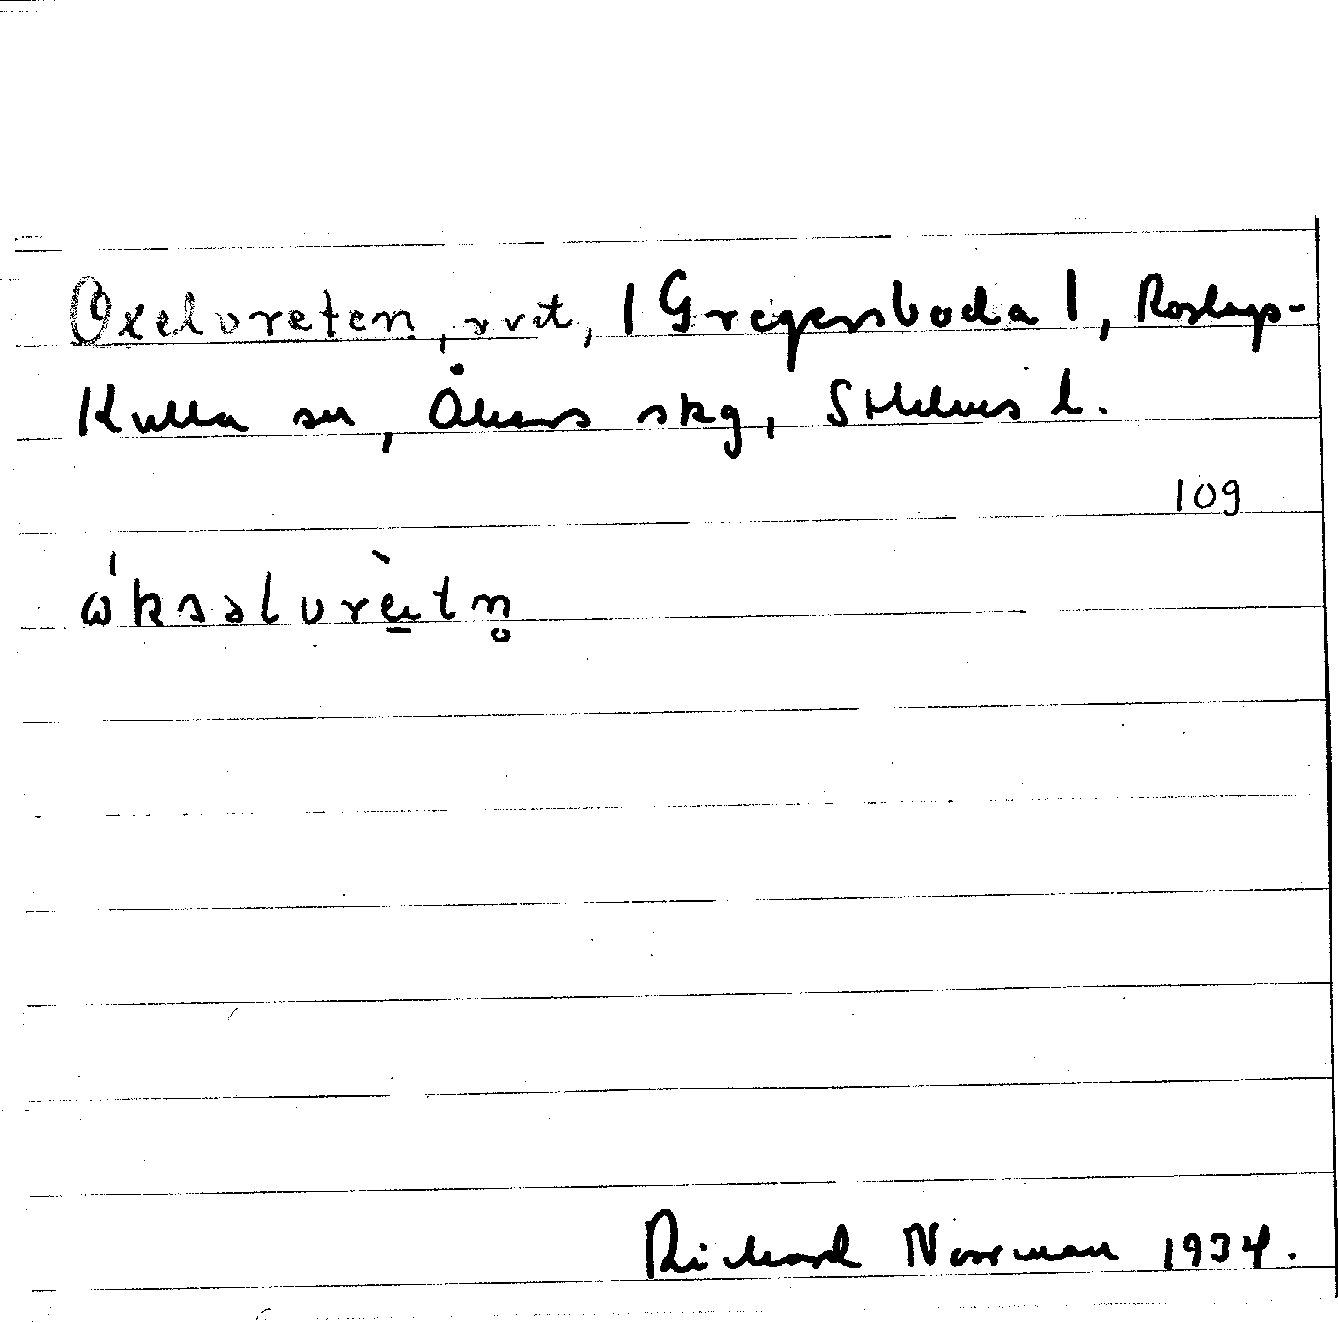 Oxelvreten, vvt, | Gregersboda |, Roslags-
Kulla sn, Åkers skg, Sthlms l.
109
ώksəlvrètn̥
Richard Norrman 1934.